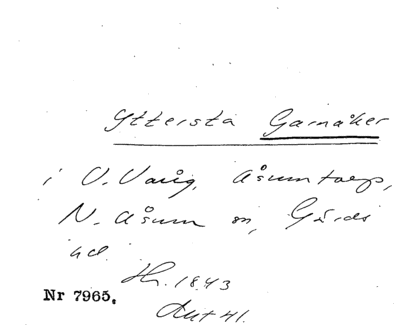 Yttersta Garnåker
i V. Vång, Åsumtorp,
N. Åsum sn, Gärds
hd.
Hr. 1843
Nr 7965.
Akt 41.